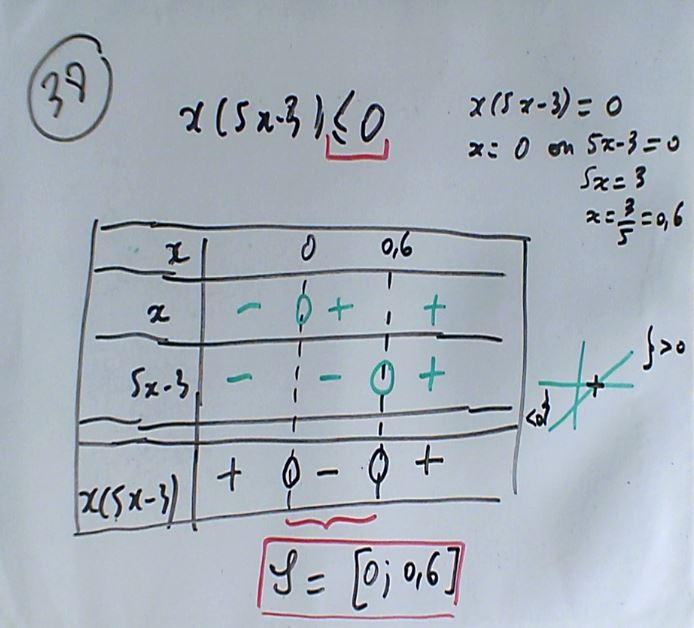 38
x(5x-3) ≤ 0
x(5x-3) = 0
x = 0 ou 5x-3 = 0
5x = 3
x = 3/5 = 0,6
x 0 0,6
x - 0 + +
5x-3 - - 0 +
x(5x-3) + 0 - 0 +
} > 0
< 0 }
S = [0; 0,6]